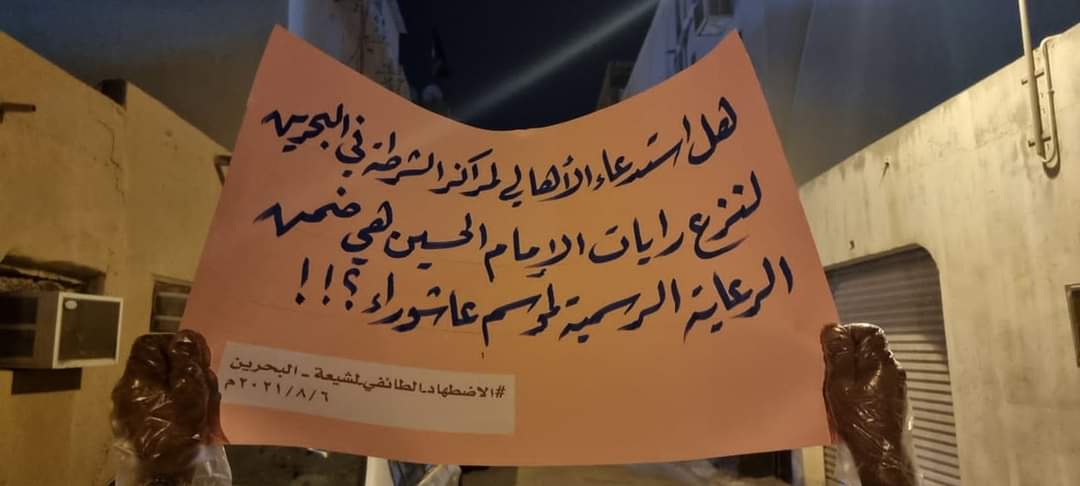 هل استدعاء الأهالي لمراكز الشرطة في البحرين
لنزع رايات الإمام الحسين هي ضمن
الرعاية الرسمية لموسم عاشوراء؟!!
#الاضطهاد_الطائفي_لشيعة_البحرين
٢٠٢١/٨/٦م